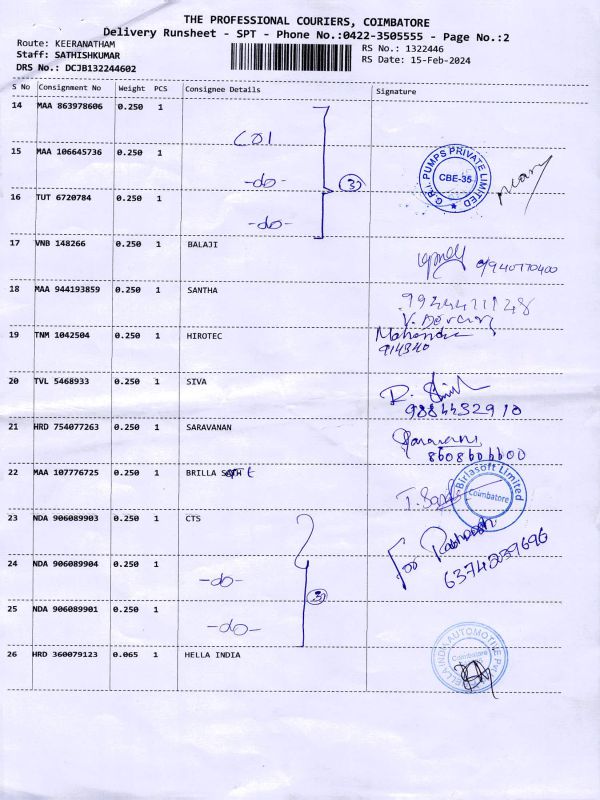 THE PROFESSIONAL COURIERS, COIMBATORE
Delivery Runsheet - SPT - Phone No.:0422-3505555 - Page No.:2
Route: KEERANATHAM
Staff: SATHISHKUMAR
DRS No.: DCJB132244602
RS No.: 1322446
RS Date: 15-Feb-2024
S No Consignment No Weight PCS Consignee Details Signature
14 MAA 863978606 0.250 1
15 MAA 106645736 0.250 1 -do-
16 TUT 6720784 0.250 1 -do-
(3)
G.R.I. PUMPS PRIVATE LIMITED
CBE-35
17 VNB 148266 0.250 1 BALAJI
18 MAA 944193859 0.250 1 SANTHA
19 TNM 1042504 0.250 1 HIROTEC Mahendra
914340
20 TVL 5468933 0.250 1 SIVA
9884452910
21 HRD 754077263 0.250 1 SARAVANAN
22 MAA 107776725 0.250 1 BRILLA
Birlasoft Limited
Coimbatore
23 NDA 906089903 0.250 1 CTS
24 NDA 906089904 0.250 1 -do-
25 NDA 906089901 0.250 1 -do-
(3)
For
26 HRD 360079123 0.065 1 HELLA INDIA
HELLA INDIA AUTOMOTIVE Pvt
Coimbatore